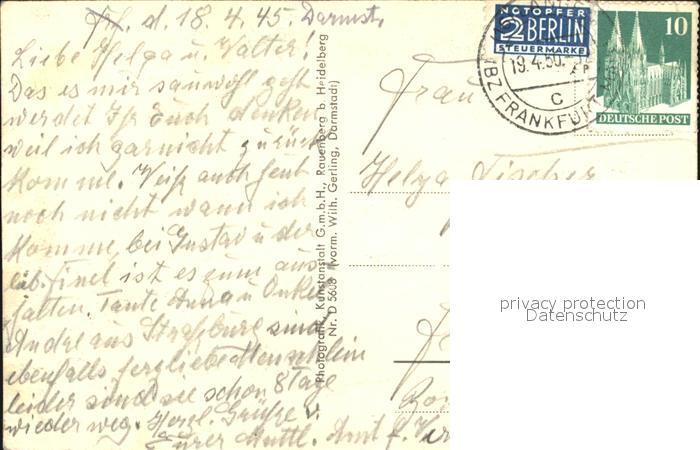 d. 18.4.45. Darmst.
Liebe Helga u. Walter!
Das es mir sauwohl geht
werdet Ihr Euch denken
weil ich garnicht zurück
komme. Weiß auch heut
noch nicht wann ich
komme, bei Gustav u. der
lieb. Finel ist es zum aus
halten. Tante Anna u. Onkel
Andre aus Straßburg sind
ebenfalls herzliebe Menschlein
leider sind sie schon 8 Tage
wieder weg. Herzl. Grüße v.
Eurer Muttl.
Photograph. Kunstanstalt G.m.b.H., Rauenberg b. Heidelberg
Nr. D 5608 (vorm. Wilh. Gerling, Darmstadt)
NOTOPFER
2 BERLIN
STEUERMARKE
10
DEUTSCHE POST
19.4.50.
c
FRANKFURT
Frau
Helga Fischer
privacy protection
Datenschutz